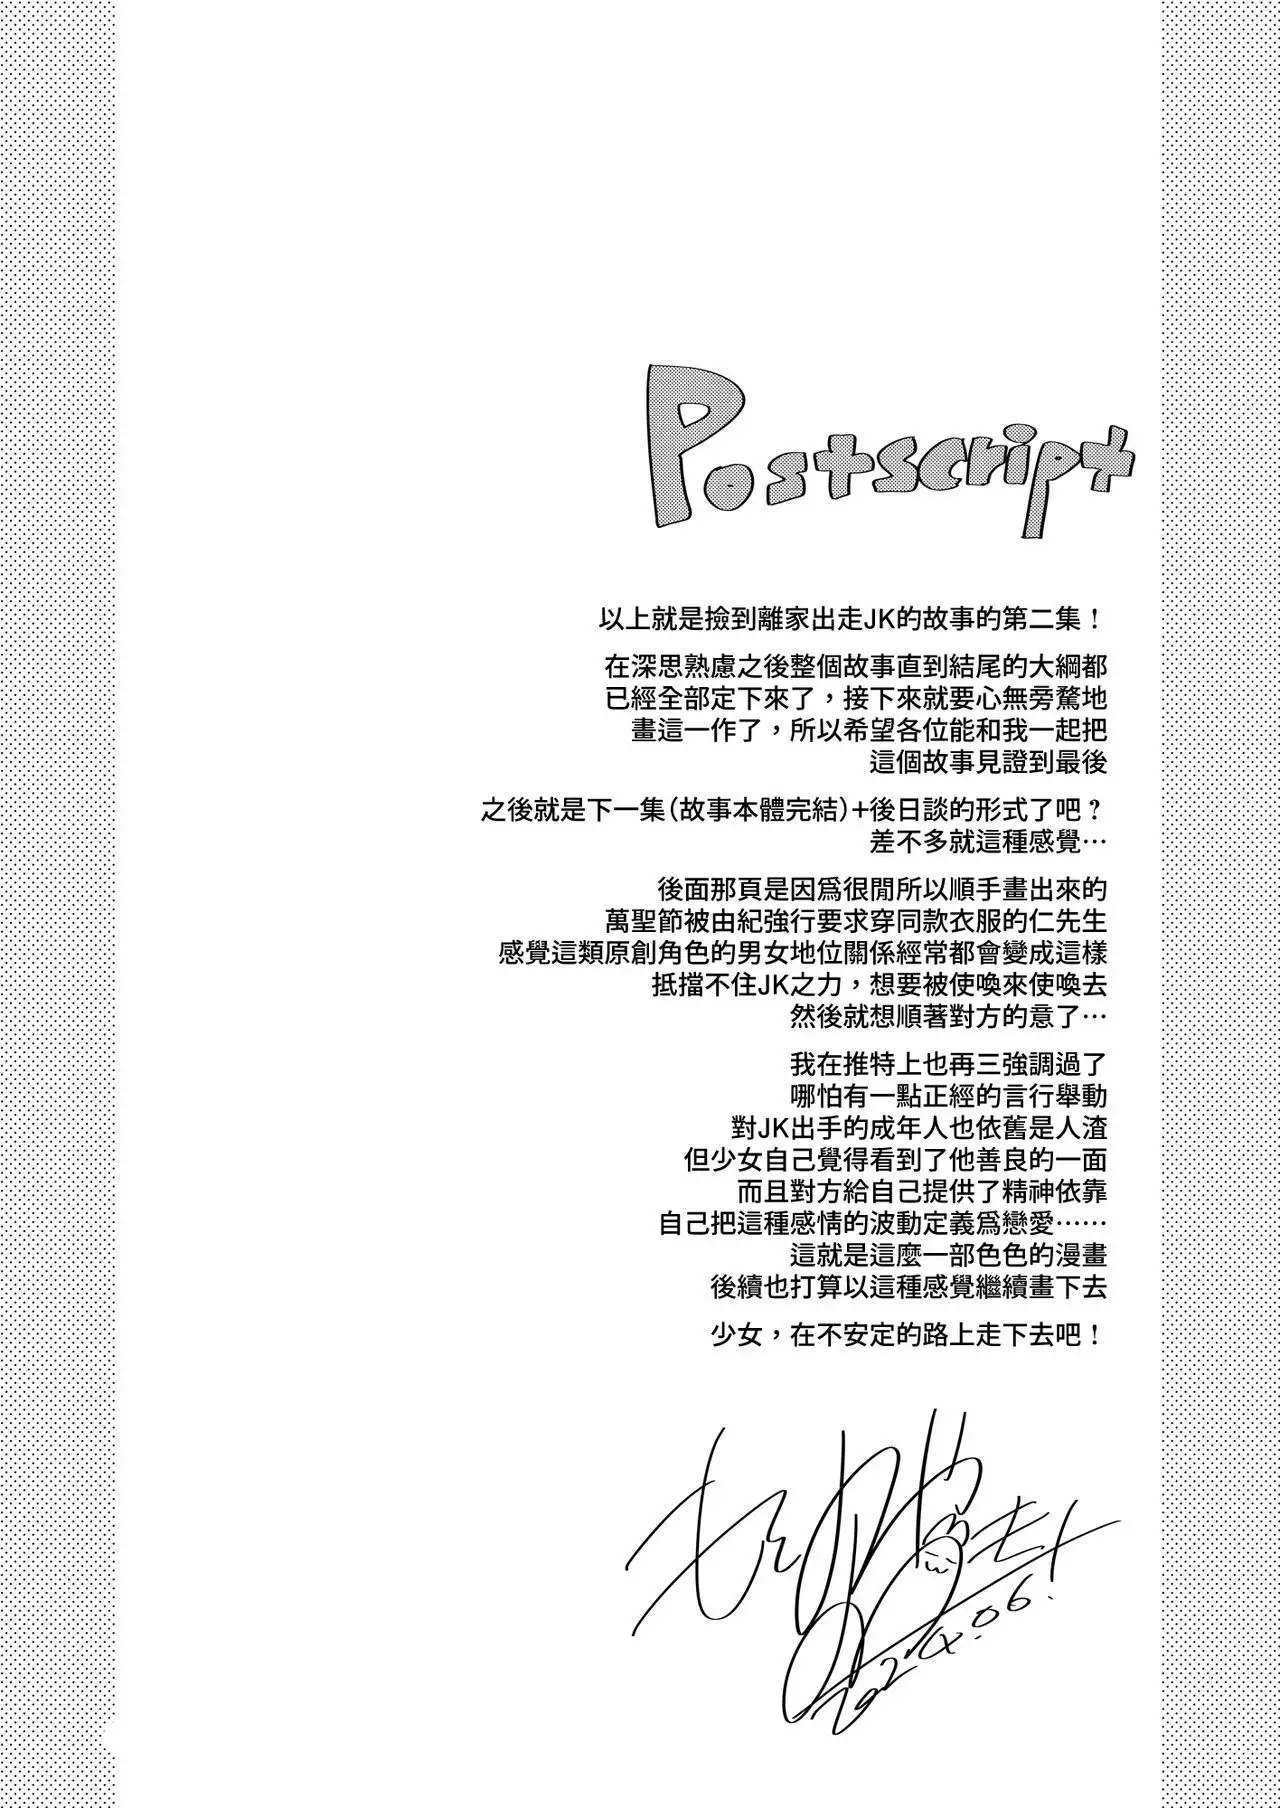 Postscript
以上就是撿到離家出走JK的故事的第二集！
在深思熟慮之後整個故事直到結尾的大綱都
已經全部定下來了，接下來就要心無旁騖地
畫這一作了，所以希望各位能和我一起把
這個故事見證到最後
之後就是下一集(故事本體完結)+後日談的形式了吧？
差不多就這種感覺…
後面那頁是因爲很閒所以順手畫出來的
萬聖節被由紀強行要求穿同款衣服的仁先生
感覺這類原創角色的男女地位關係經常都會變成這樣
抵擋不住JK之力，想要被使喚來使喚去
然後就想順著對方的意了…
我在推特上也再三強調過了
哪怕有一點正經的言行舉動
對JK出手的成年人也依舊是人渣
但少女自己覺得看到了他善良的一面
而且對方給自己提供了精神依靠
自己把這種感情的波動定義爲戀愛……
這就是這麼一部色色的漫畫
後續也打算以這種感覺繼續畫下去
少女，在不安定的路上走下去吧！